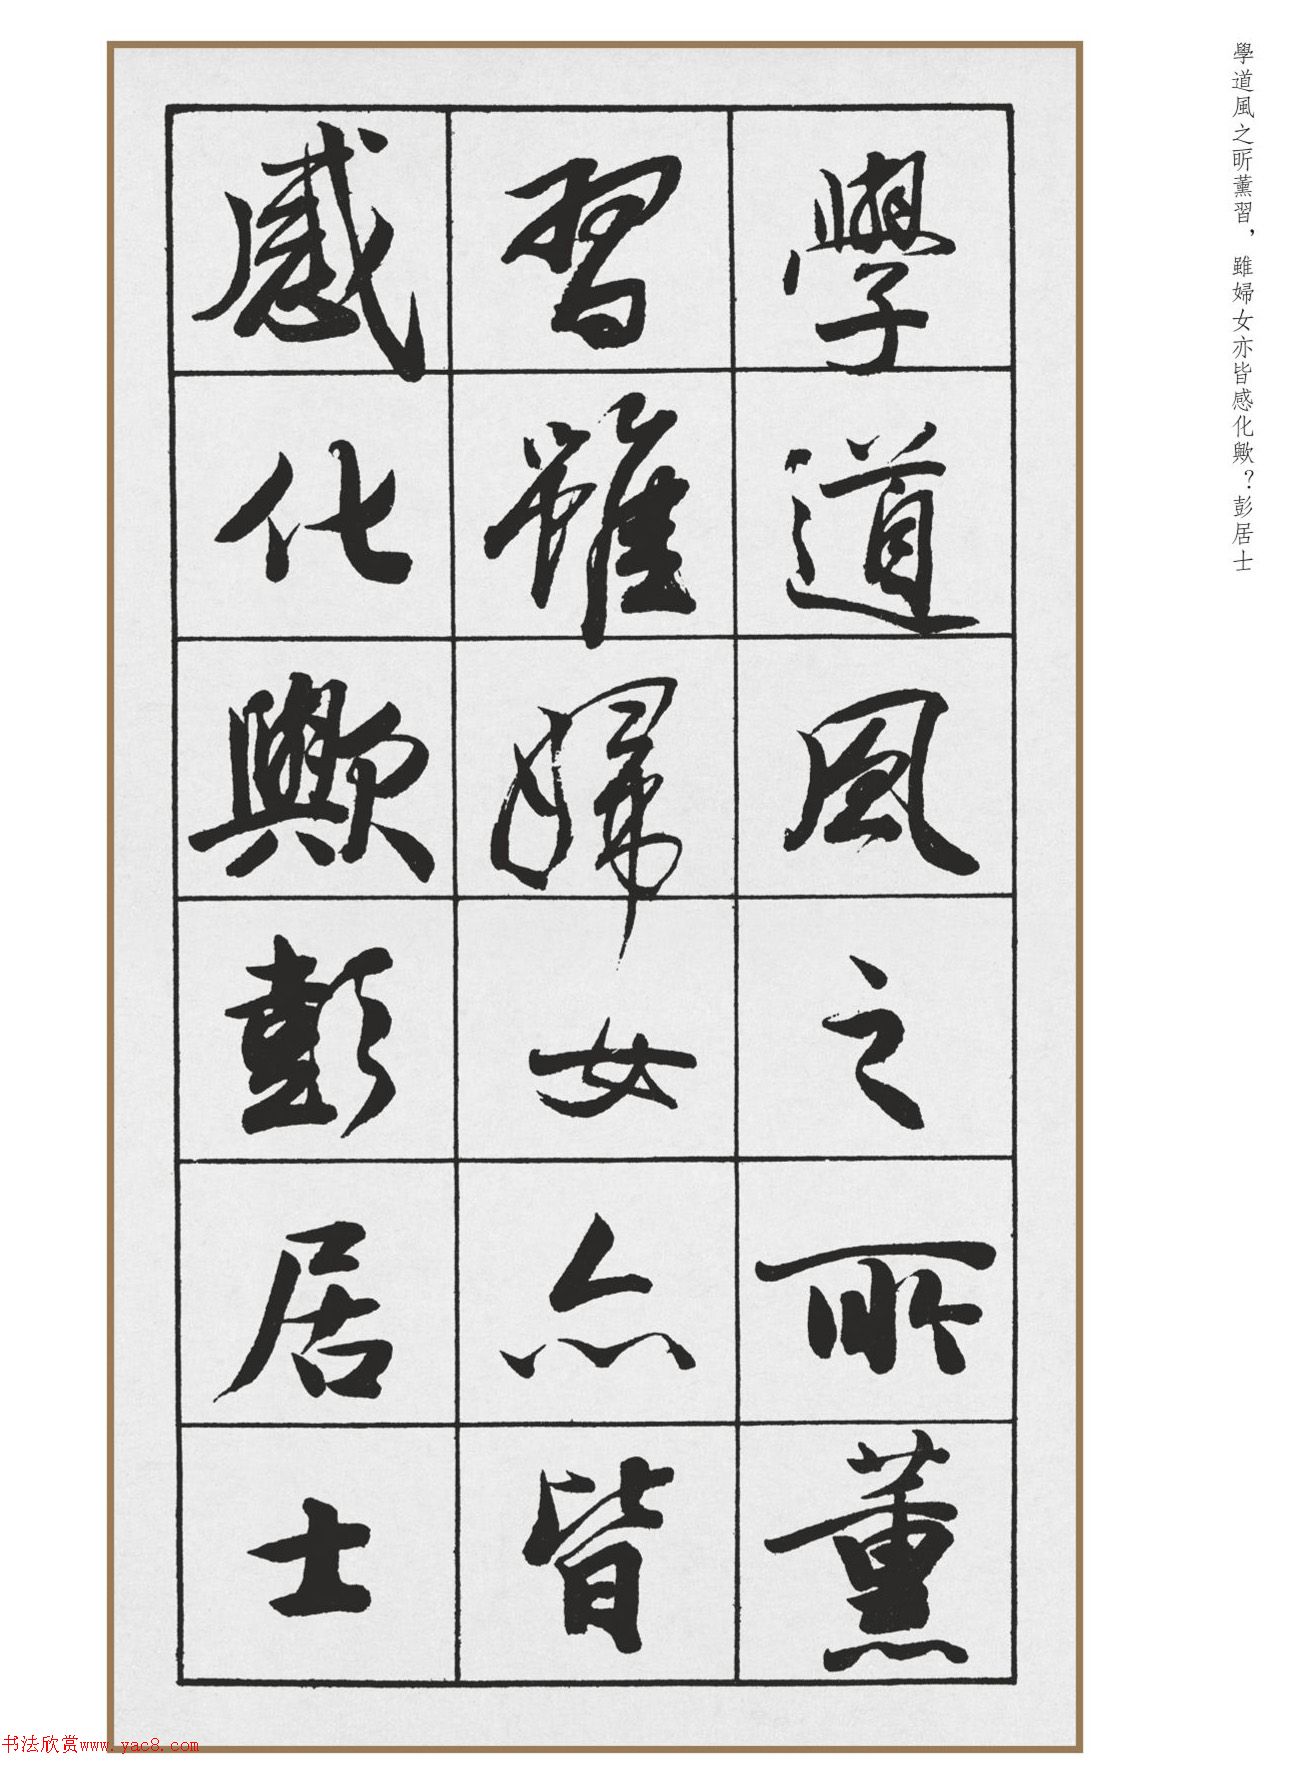 學道風之所薰習，雖婦女亦皆感化歟？彭居士
學道風之所薰
習雖婦女亦皆
感化歟彭居士
书法欣赏www.yac8.com